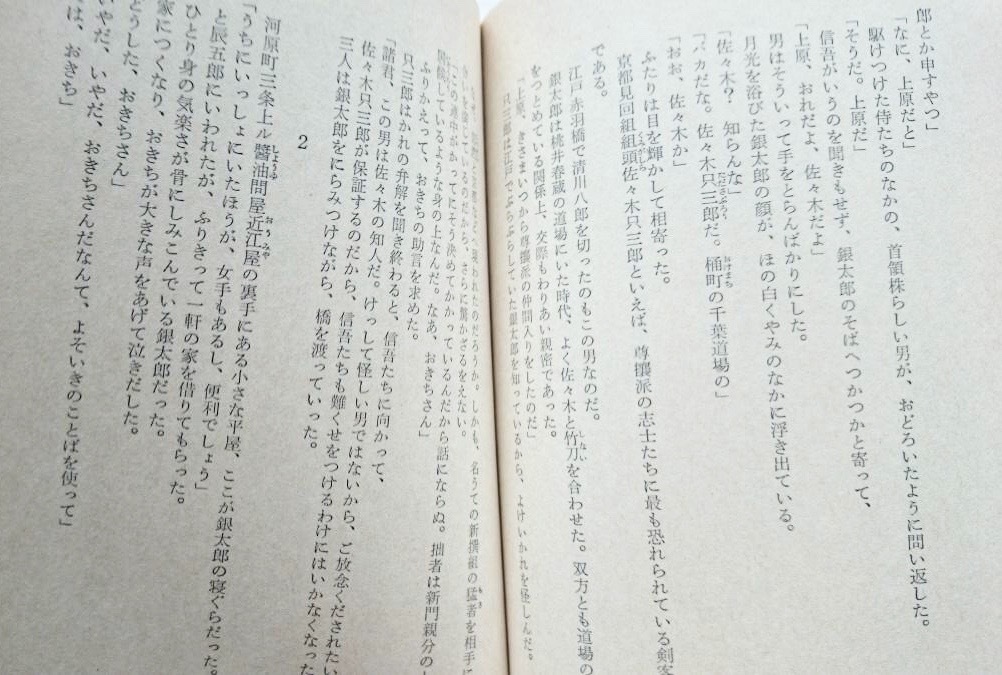 郎とか申すやつ」
「なに、上原だと」
駆けつけた侍たちのなかの、首領株らしい男が、おどろいたように問い返した。
「そうだ。上原だ」
信吾がいうのを聞きもせず、銀太郎のそばへつかつかと寄って、
「上原、おれだよ、佐々木だよ」
男はそういって手をとらんばかりにした。
月光を浴びた銀太郎の顔が、ほの白くやみのなかに浮き出ている。
「佐々木？　知らんな」
「バカだな。佐々木只三郎だ。桶町の千葉道場の」
「おお、佐々木か」
ふたりは目を輝かして相寄った。
京都見回組組頭佐々木只三郎といえば、尊攘派の志士たちに最も恐れられている剣客
である。
江戸赤羽橋で清川八郎を切ったのもこの男なのだ。
銀太郎は桃井春蔵の道場にいた時代、よく佐々木と竹刀を合わせた。双方とも道場の
をつとめている関係上、交際もわりあい親密であった。
「上原、きさまいつから尊攘派の仲間入りをしたのだ」
只三郎は江戸でぶらぶらしていた銀太郎を知っているから、よけいかれを怪しんだ。
しかも、名うての新撰組の猛者を相手に
いるのだから、さらに驚かざるをえない。
「この連中がかってにそう決めてかかっているんだから話にならぬ。拙者は新門親分の
しているような身の上なんだ。なあ、おきちさん」
ふりかえって、おきちの助言を求めた。
只三郎はかれの弁解を聞き終わると、信吾たちに向かって、
「諸君、この男は佐々木の知人だ。けっして怪しい男ではないから、ご放念くだされたい
佐々木只三郎が保証するのだから、信吾たちも難くせをつけるわけにはいかなくなった
三人は銀太郎をにらみつけながら、橋を渡っていった。
2
河原町三条上ル醬油問屋近江屋の裏手にある小さな平屋、ここが銀太郎の寝ぐらだった。
「うちにいっしょにいたほうが、女手もあるし、便利でしょう」
と辰五郎にいわれたが、ふりきって一軒の家を借りてもらった。
ひとり身の気楽さが骨にしみこんでいる銀太郎だった。
家につくなり、おきちが大きな声をあげて泣きだした。
どうした、おきちさん」
いやだ、いやだ、おきちさんだなんて、よそいきのことばを使って」
は、おきち」